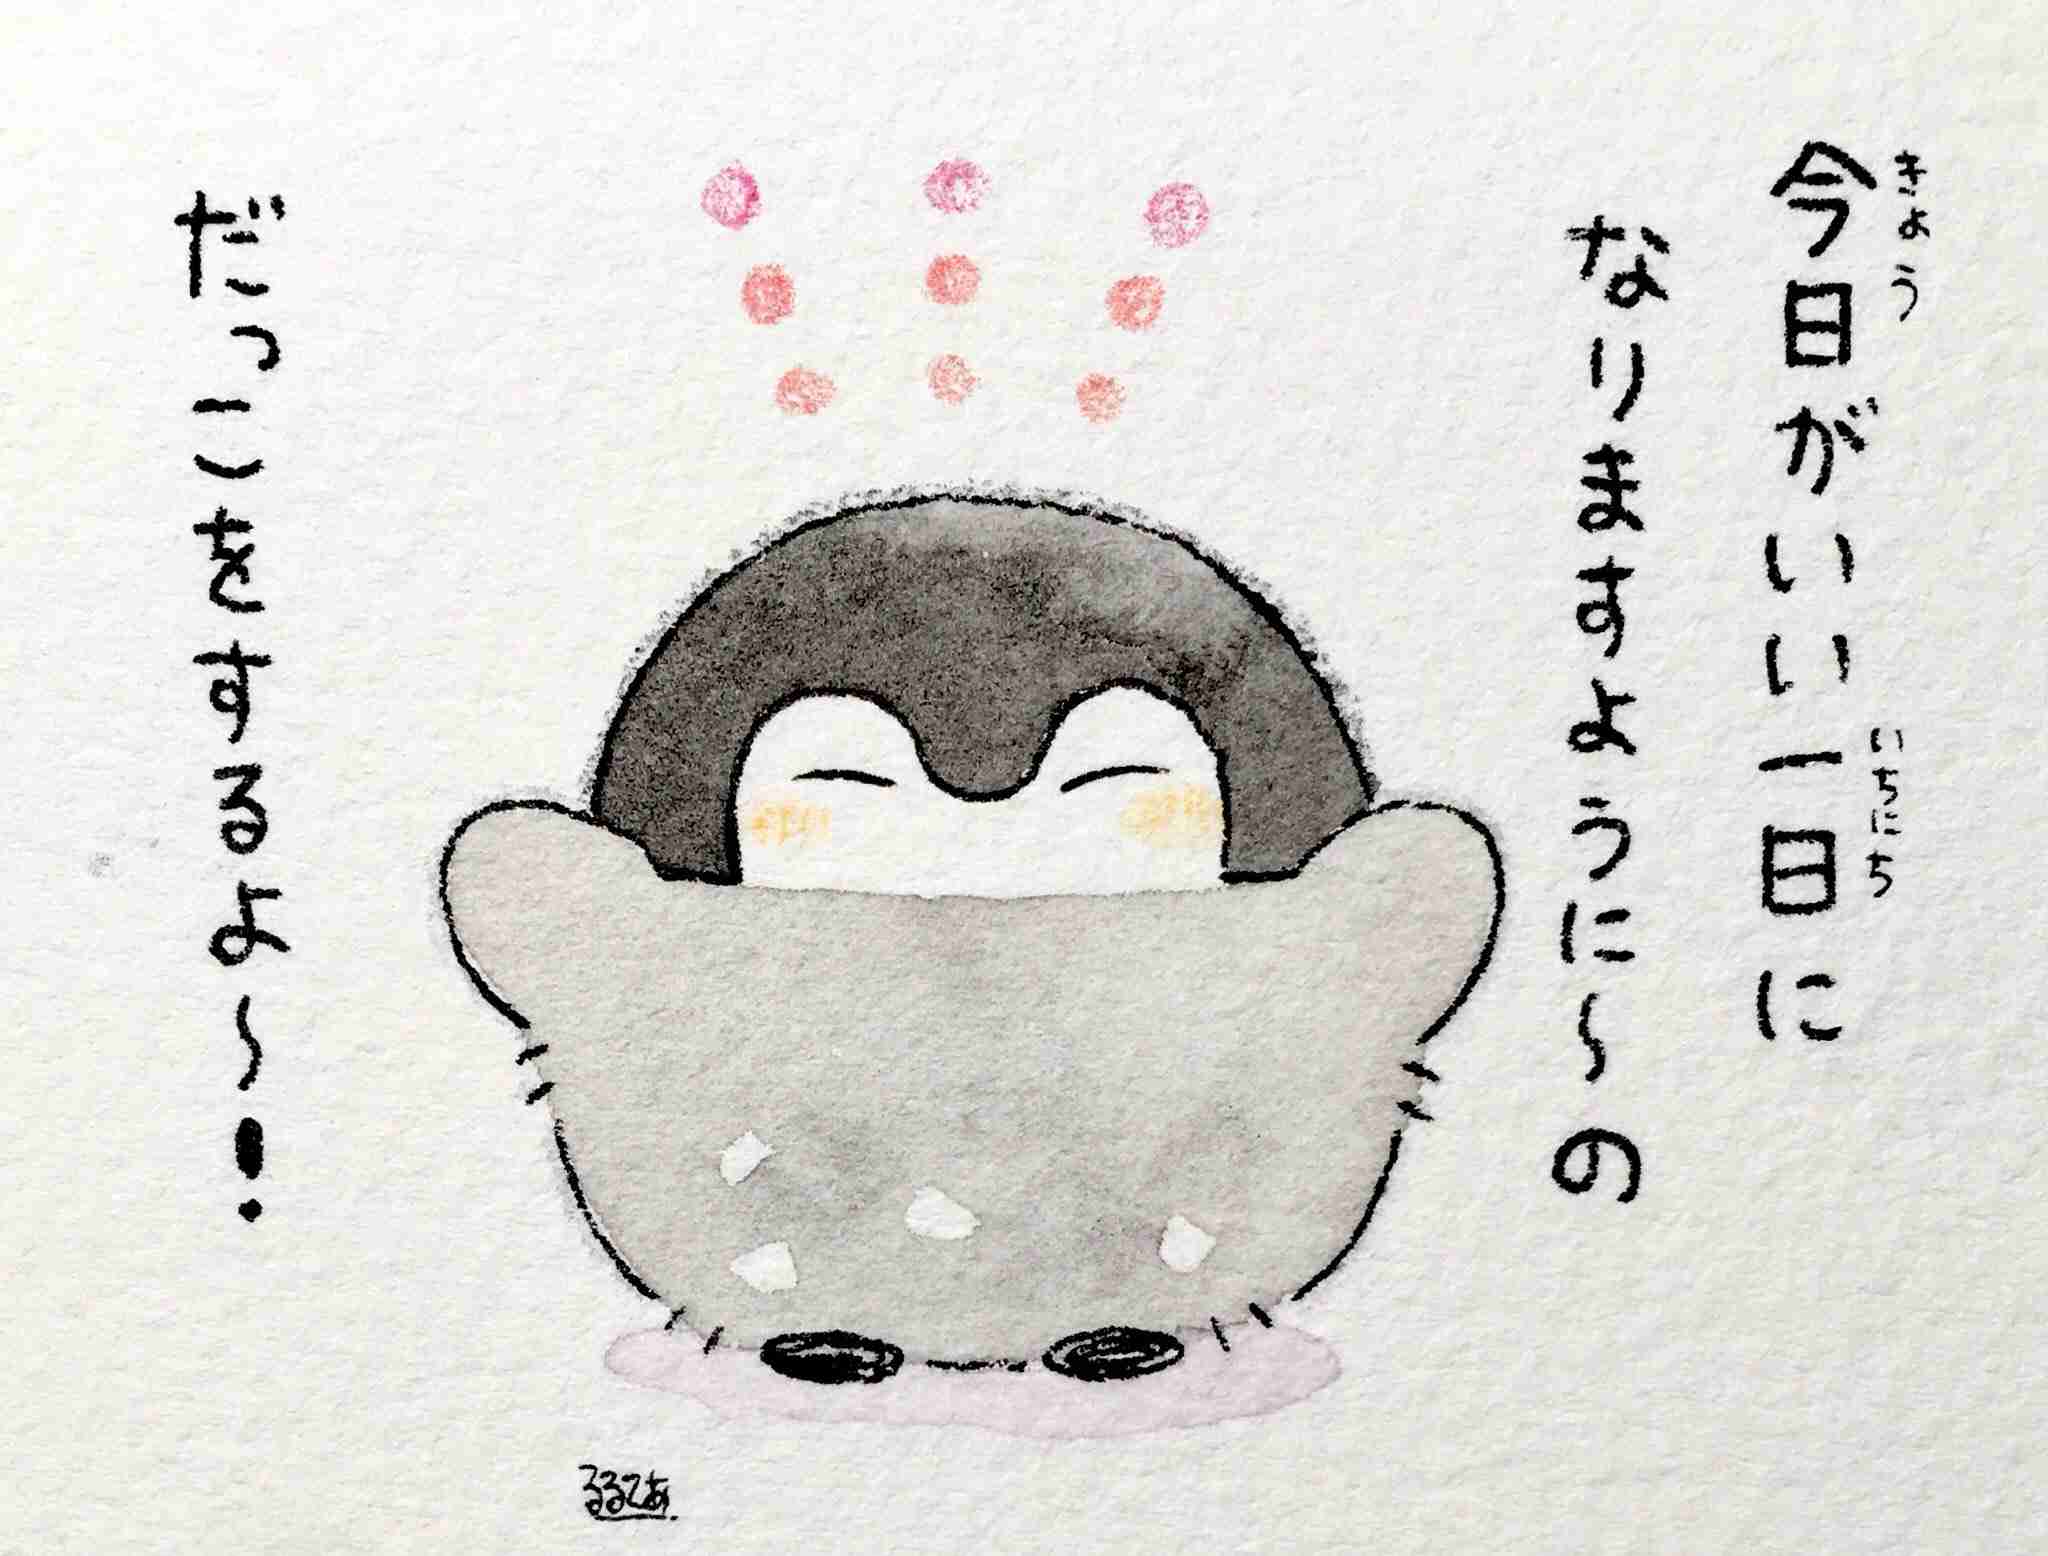 今日がいい一日に
きょう
いちにち
なりますように〜の
だっこをするよ〜!
るるてあ